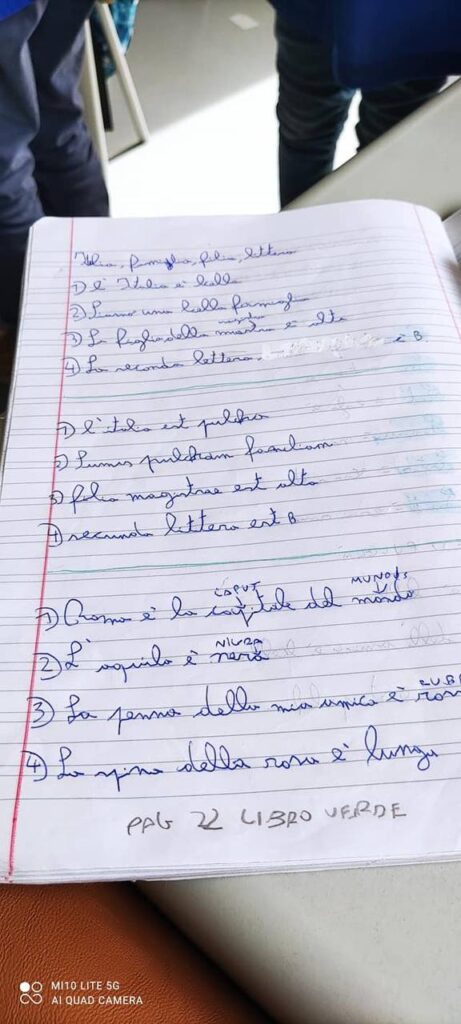 Italia, famiglia, filia, littera
1) L'Italia è bella
2) Siamo una bella famiglia
maestra
3) La figlia della è alta
4) La seconda lettera è B
1) L'italia est pulchra
2) Sumus pulchram familiam
3) filia magistrae est alta
4) secunda littera est B
CAPUT MUNDUS
1) Roma è la capitale del mondo
NIGRA
2) L'aquila è nera
RUB
3) La penna della mia amica è ros
4) La spina della rosa è lunga
PAG 22 LIBRO VERDE
MI10 LITE 5G
AI QUAD CAMERA